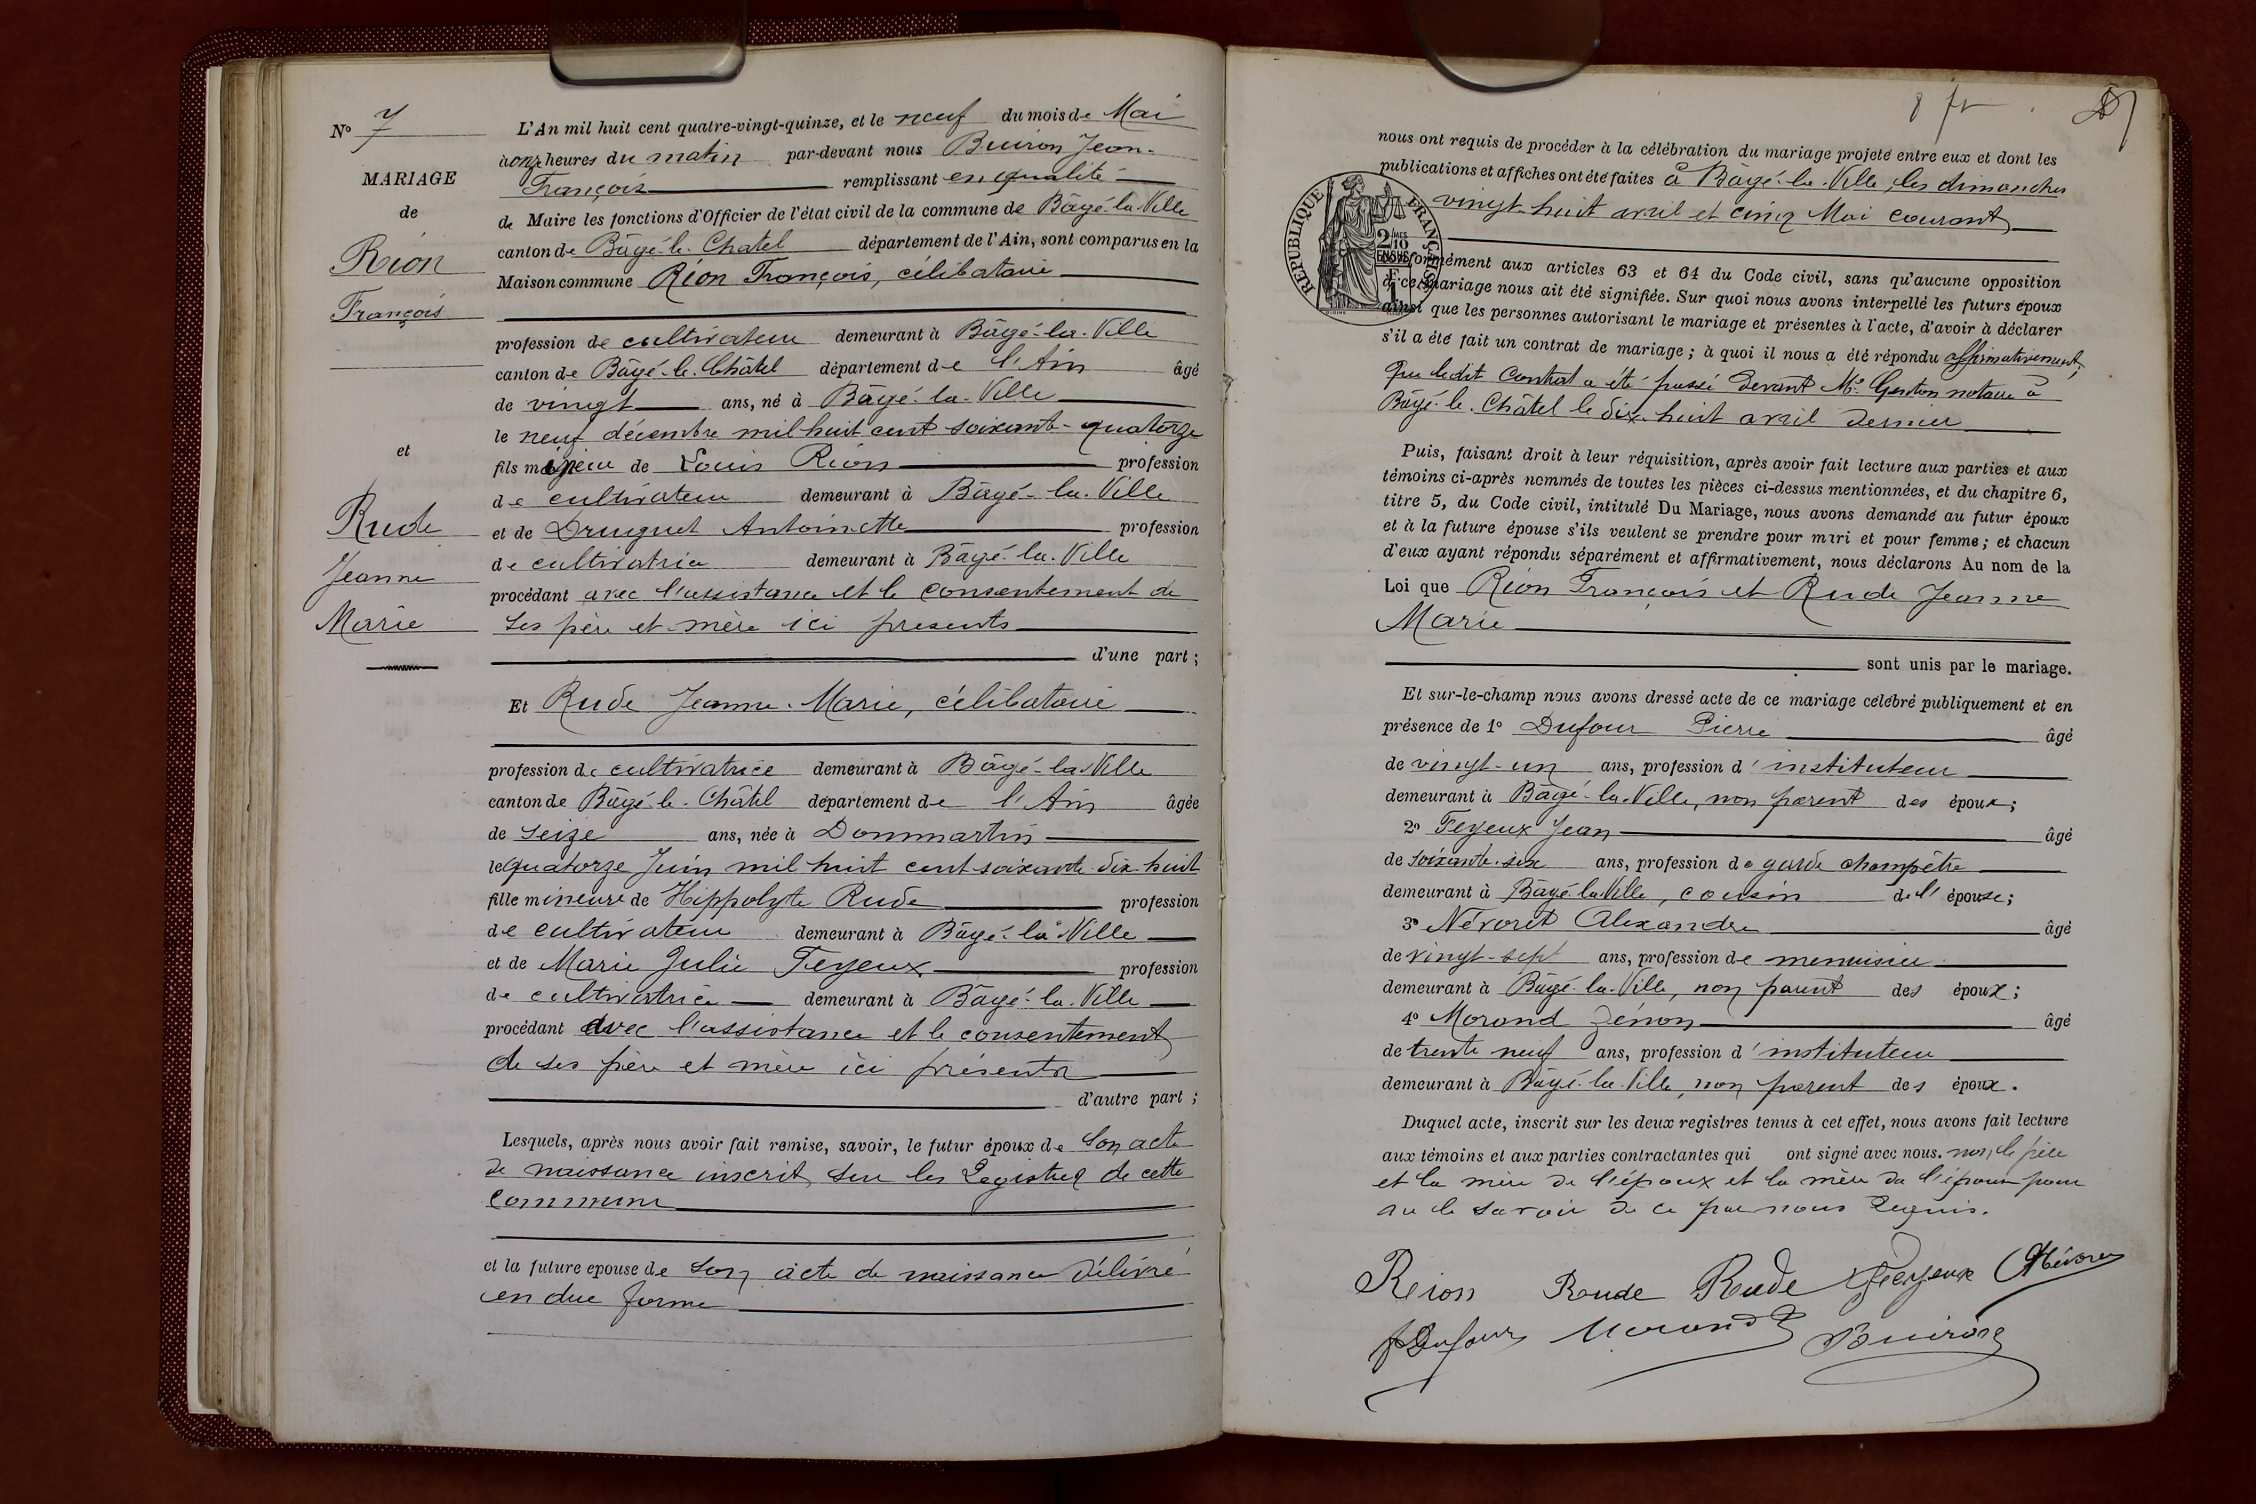 N° 7
MARIAGE
de
Réon
François
et
Rude
Jeanne
Marie
L'An mil huit cent quatre-vingt-quinze, et le neuf du mois de Mai
à onze heures du matin par-devant nous Buiron Jean-
François remplissant en qualité
de Maire les fonctions d'Officier de l'état civil de la commune de Bâgé-la-Ville
canton de Bâgé-le-Chatel département de l'Ain, sont comparus en la
Maison commune Réon François, célibataire
profession de cultivateur demeurant à Bâgé-la-Ville
canton de Bâgé-le-Châtel département de l'Ain âgé
de vingt ans, né à Bâgé-la-Ville
le neuf décembre mil huit cent soixante-quatorze
fils mineur de Louis Réon profession
de cultivateur demeurant à Bâgé-la-Ville
et de Druguet Antoinette profession
de cultivatrice demeurant à Bâgé-la-Ville
procédant avec l'assistance et le consentement de
ses père et mère ici présents
d'une part ;
Et Rude Jeanne-Marie, célibataire
profession de cultivatrice demeurant à Bâgé-la-Ville
canton de Bâgé-le-Châtel département de l'Ain âgée
de seize ans, née à Dommartin
le quatorze Juin mil huit cent soixante dix huit
fille mineure de Hippolyte Rude profession
de cultivateur demeurant à Bâgé-la-Ville
et de Marie Julie Feyeux profession
de cultivatrice demeurant à Bâgé-la-Ville
procédant avec l'assistance et le consentement
de ses père et mère ici présents
d'autre part ;
Lesquels, après nous avoir fait remise, savoir, le futur époux de son acte
de naissance inscrit sur les Registres de cette
commune
et la future epouse de son acte de naissance délivré
en due forme
8 fr
nous ont requis de procéder à la célébration du mariage projeté entre eux et dont les
publications et affiches ont été faites à Bâgé-la-Ville, les dimanches
vingt-huit avril et cinq Mai courant
RÉPUBLIQUE FRANÇAISE
2/10 MES
EN SUS
conformément aux articles 63 et 64 du Code civil, sans qu'aucune opposition
à ce mariage nous ait été signifiée. Sur quoi nous avons interpellé les futurs époux
ainsi que les personnes autorisant le mariage et présentes à l'acte, d'avoir à déclarer
s'il a été fait un contrat de mariage ; à quoi il nous a été répondu affirmativement,
que ledit contrat a été passé devant Me notaire à
Bâgé-le-Châtel le dix-huit avril dernier
Puis, faisant droit à leur réquisition, après avoir fait lecture aux parties et aux
témoins ci-après nommés de toutes les pièces ci-dessus mentionnées, et du chapitre 6,
titre 5, du Code civil, intitulé Du Mariage, nous avons demandé au futur époux
et à la future épouse s'ils veulent se prendre pour mari et pour femme ; et chacun
d'eux ayant répondu séparément et affirmativement, nous déclarons Au nom de la
Loi que Réon François et Rude Jeanne
Marie
sont unis par le mariage.
Et sur-le-champ nous avons dressé acte de ce mariage célébré publiquement et en
présence de 1° Dufour Pierre âgé
de vingt-un ans, profession d'instituteur
demeurant à Bâgé-la-Ville, non parent des époux ;
2° Feyeux Jean âgé
de soixante-six ans, profession de garde champêtre
demeurant à Bâgé-la-Ville, cousin de l'épouse ;
3° Névoret Alexandre âgé
de vingt-sept ans, profession de menuisier
demeurant à Bâgé-la-Ville, non parent des époux ;
4° Morand Zénon âgé
de trente neuf ans, profession d'instituteur
demeurant à Bâgé-la-Ville, non parent des époux.
Duquel acte, inscrit sur les deux registres tenus à cet effet, nous avons fait lecture
aux témoins et aux parties contractantes qui ont signé avec nous. non le père
et la mère de l'époux et la mère de l'épouse pour
ne le savoir de ce par nous requis.
Reion Rude Rude Feyeux Névoret
Dufour Morand Buiron